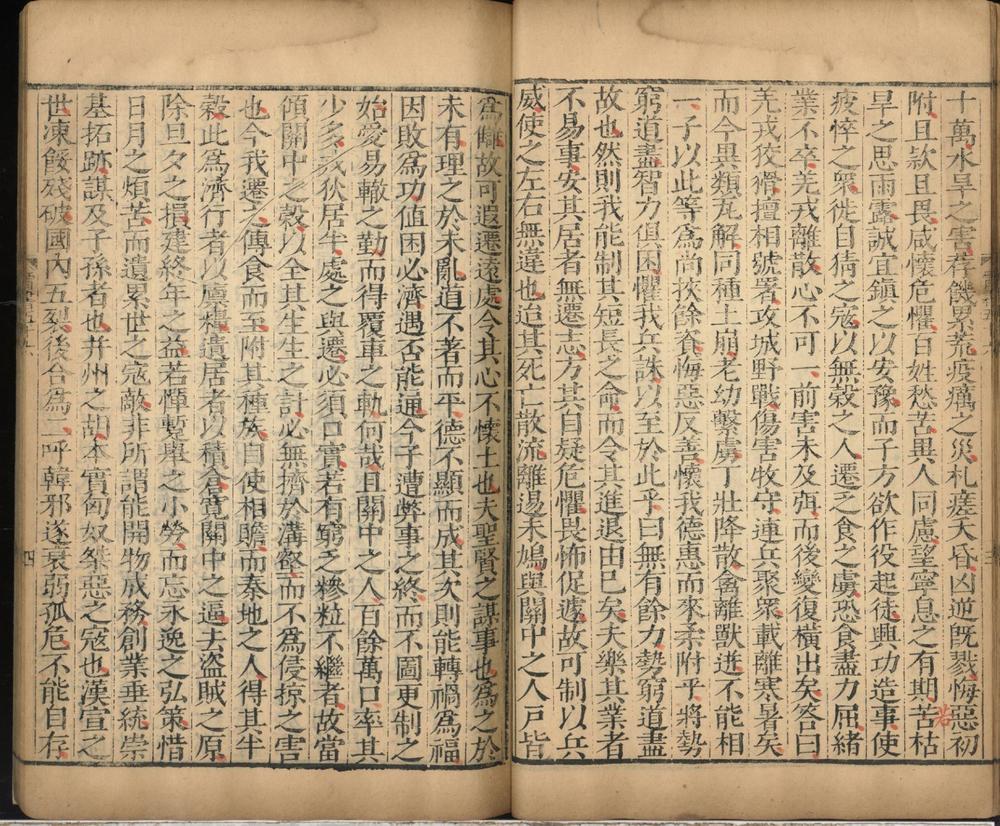 十萬水旱之害荐饑累荒疫癘之災札瘥夭昏凶逆既戮悔惡初
附且款且畏咸懷危懼百姓愁苦異人同慮望寧息之有期苦枯
若
旱之思雨露誠宜鎮之以安豫而子方欲作役起徒興功造事使
疲悴之衆徙自猜之寇以無穀之人遷乏食之虜恐食盡力屈緒
業不卒羌戎離散心不可一前害未及弭而後變復橫出矣答曰
羌戎狡猾擅相號署攻城野戰傷害牧守連兵聚衆載離寒暑矣
而今異類瓦解同種土崩老幼繫虜丁壯降散禽離獸迸不能相
一子以此等爲尚挾餘資悔惡反善懷我德惠而來柔附乎將勢
窮道盡智力俱困懼我兵誅以至於此乎曰無有餘力勢窮道盡
故也然則我能制其短長之命而令其進退由己矣夫樂其業者
不易事安其居者無遷志方其自疑危懼畏怖促遽故可制以兵
威使之左右無違也迨其死亡散流離逷未鳩與關中之人戸皆
爲讎故可遐遷遠處令其心不懷土也夫聖賢之謀事也爲之於
未有理之於未亂道不著而平德不顯而成其次則能轉禍爲福
因敗爲功值困必濟遇否能通今子遭弊事之終而不圖更制之
始愛易轍之勤而得覆車之軌何哉且關中之人百餘萬口率其
少多戎狄居半處之與遷必須口實若有窮乏糝粒不繼者故當
傾關中之穀以全其生生之計必無擠於溝壑而不爲侵掠之害
也今我遷之傳食而至附其種族自使相贍而秦地之人得其半
穀此爲濟行者以廩糧遺居者以積倉寬關中之逼去盜賊之原
除旦夕之損建終年之益若憚蹔舉之小勞而忘永逸之弘策惜
日月之煩苦而遺累世之寇敵非所謂能開物成務創業垂統崇
基拓跡謀及子孫者也并州之胡本實匈奴桀惡之寇也漢宣之
世凍餒殘破國內五裂後合爲二呼韓邪遂衰弱孤危不能自存
四